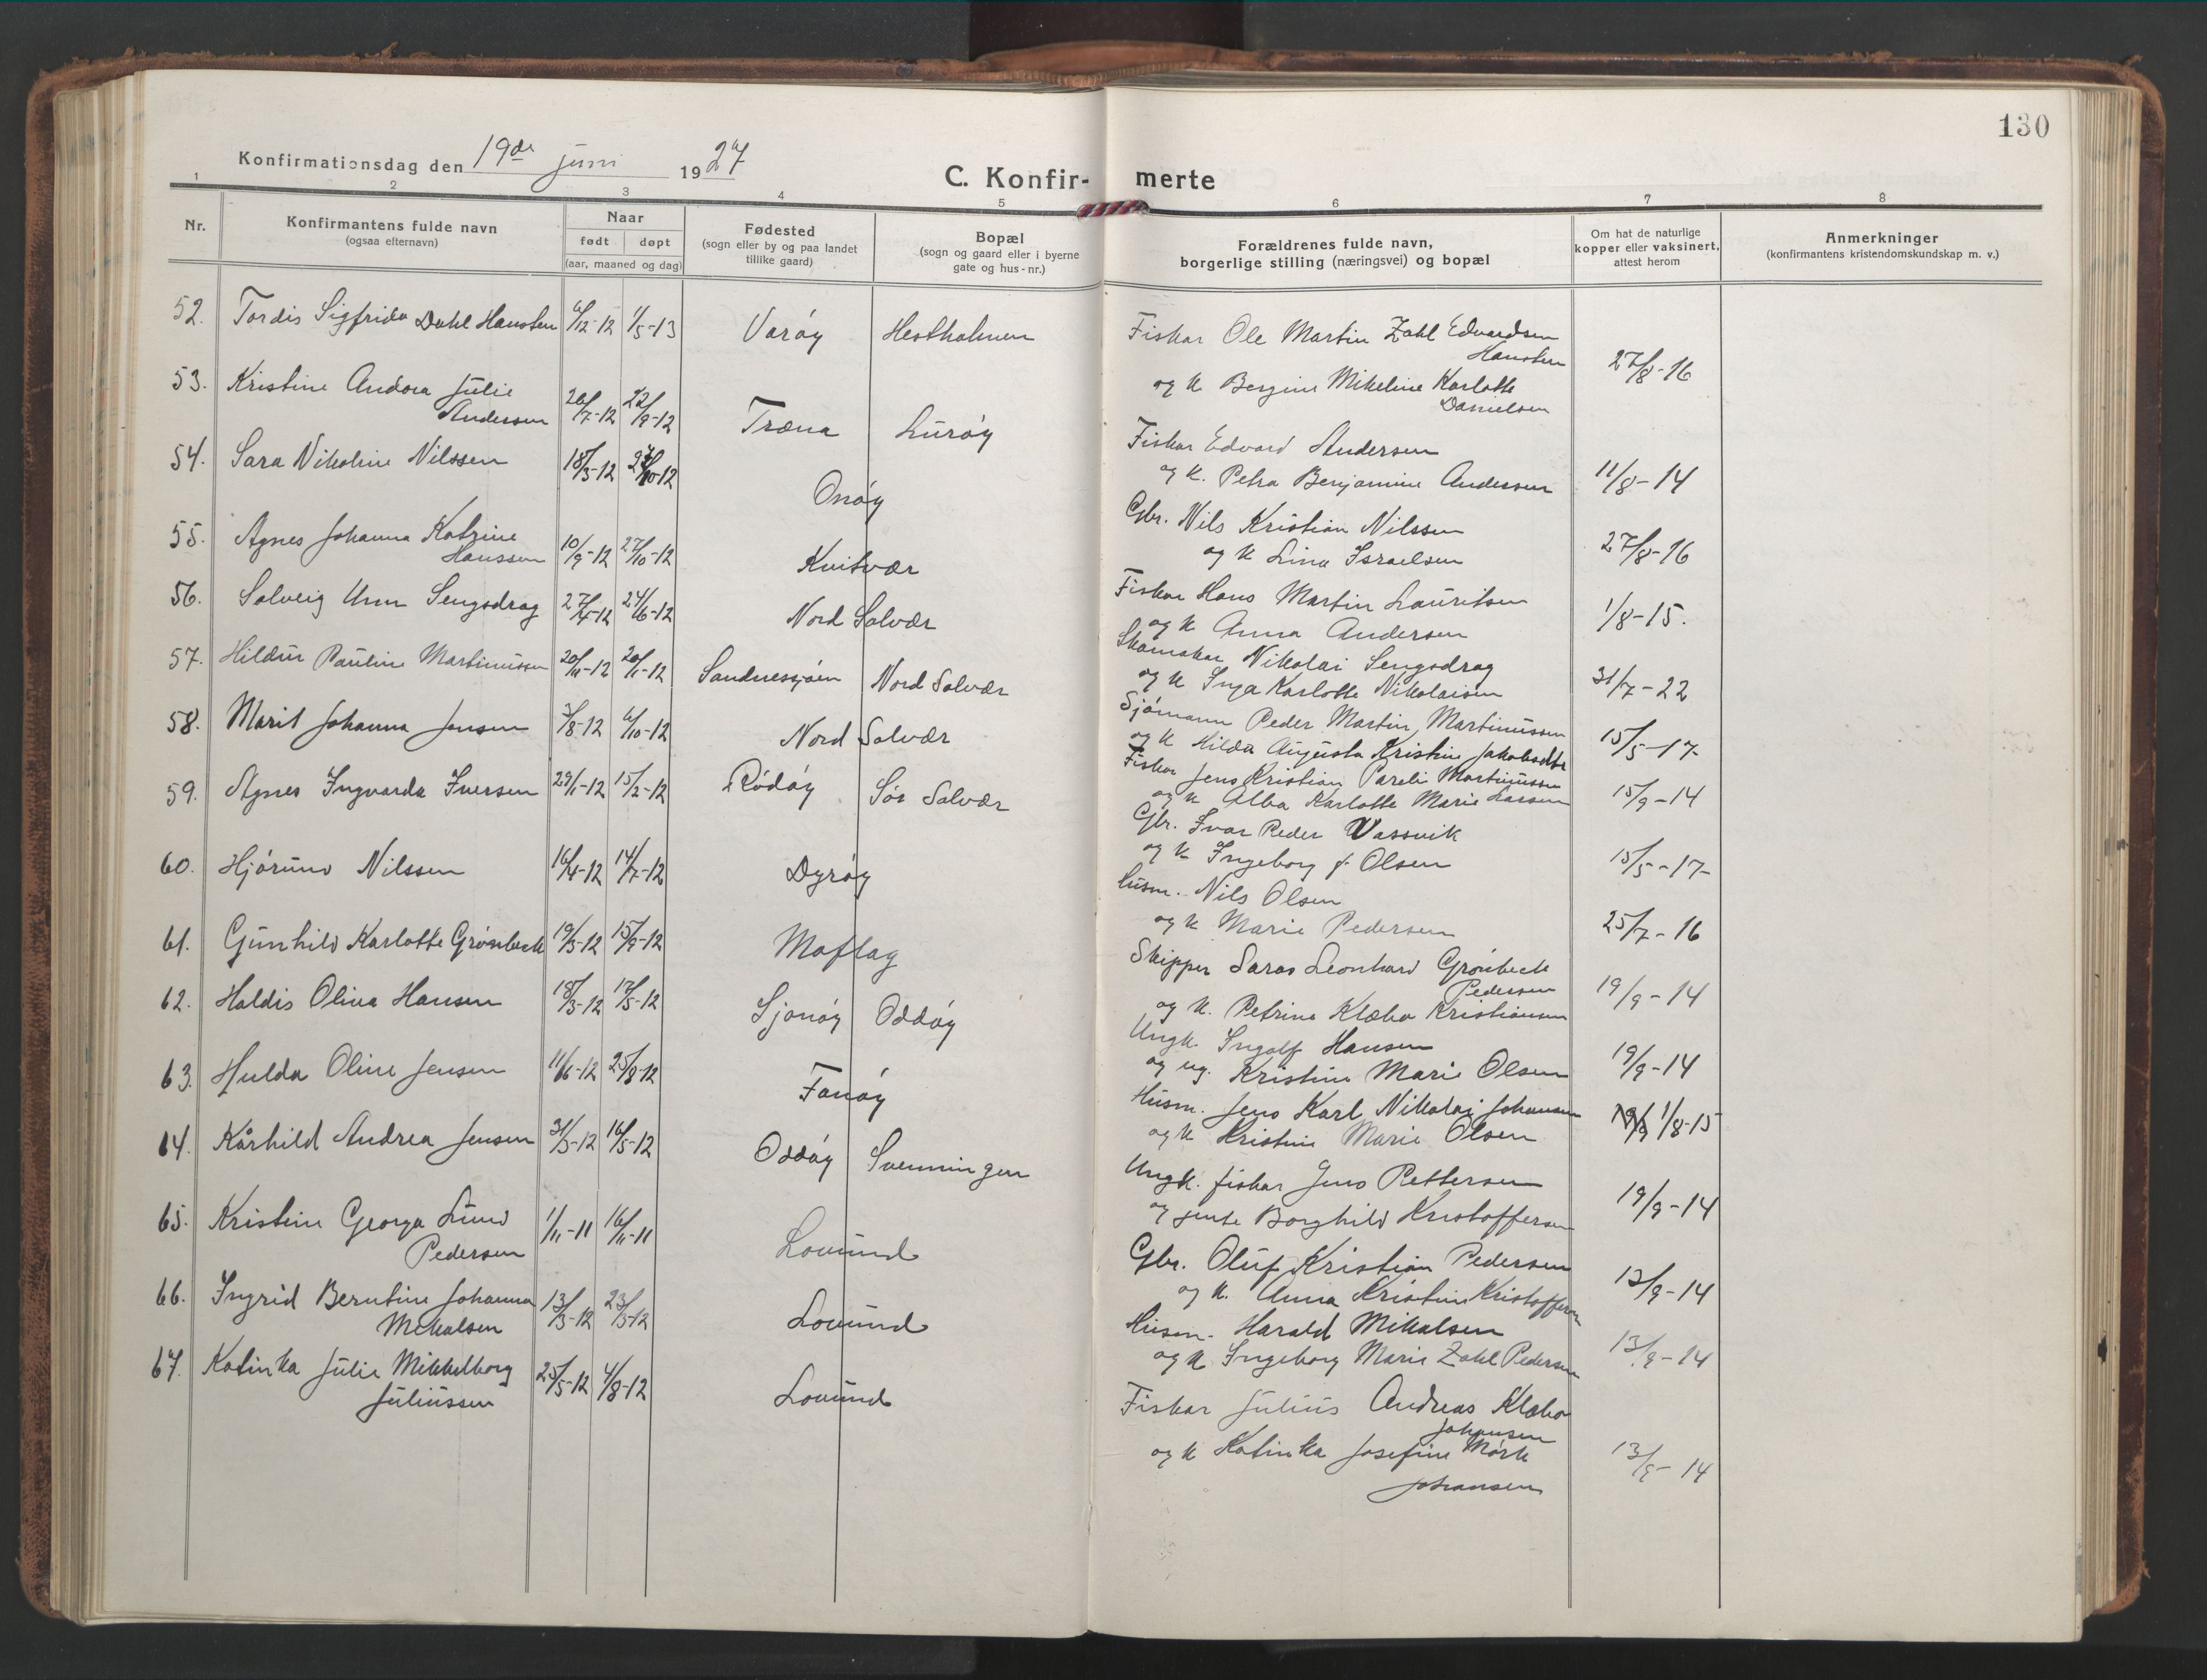 130
Konfirmationsdag den 19de juni 1927
C. Konfir- merte
1 2 3 4 5 6 7 8
Nr.
Konfirmantens fulde navn
(ogsaa efternavn)
Naar
født døpt
(aar, maaned og dag)
Fødested
(sogn eller by og paa landet
tillike gaard)
Bopæl
(sogn og gaard eller i byerne
gate og hus-nr.)
Forældrenes fulde navn,
borgerlige stilling (næringsvei) og bopæl
Om hat de naturlige
kopper eller vaksinert,
attest herom
Anmerkninger
(konfirmantens kristendomskundskap m. v.)
52. Tordis Sigfrida Dahl Hansten 6/12-12 1/5-13 Varøy Hestholmen
Fiskar Ole Martin Zahl Edvardsen
Hansten
og k Bergine Mikeline Karlotte
Danielsen
27/8-16
53. Kristine Andora Julie
Andersen 26/7-12 22/9-12 Træna Lurøy
Fiskar Edvard Andersen
og k. Petra Benjamine Andersen 11/8-14
54. Sara Nikoline Nilssen 18/3-12 27/10-12 Onøy
Gbr. Nils Kristian Nilssen
og k Lina Israelsen 27/8-16
55. Agnes Johanna Katrine
Hanssen 10/9-12 27/10-12 Kvitvær
Fiskar Hans Martin Lauritsen
og k Anna Andersen 1/8-15.
56. Solveig Unn Sengsdrag 27/4-12 24/6-12 Nord Solvær
Skomakar Nikolai Sengsdrag
og k Inga Karlotte Nikolaisen 31/7-22
57. Hildur Pauline Martinussen 20/11-12 26/1-12 Sandnessjøen Nord Solvær
Sjømann Peder Martin Martinussen
og k Hilda Augusta Kristine Jakobsdtr 15/5-17
58. Marit Johanna Jensen 3/8-12 6/10-12 Nord Solvær
Fiskar Jens Kristian Pareli Martinussen
og k Alba Karlotte Marie Larsen 15/9-14
59. Agnes Ingvarda Iversen 29/1-12 15/2-12 Rødøy Sør Solvær
Gbr. Ivar Peder Vassvik
og k Ingeborg f. Olsen 15/5-17
60. Hjørund Nilssen 16/4-12 14/7-12 Dyrøy
Husm. Nils Olsen
og k Marie Pedersen 25/7-16
61. Gunhild Karlotte Grønbeck 19/3-12 15/9-12 Moflag
Skipper Saras Leonhard Grønbeck
Pedersen
og k. Petrine Klæbo Kristiansen 19/9-14
62. Haldis Oliva Hansen 18/3-12 17/5-12 Sjonøy Oddøy
Ungk. Ingolf Hansen
og ug. Kristine Marie Olsen 19/9-14
63. Hulda Oline Jensen 11/6-12 25/8-12 Fanøy
Husm. Jens Karl Nikolai Johansen
og k Kristine Marie Olsen 19/9 1/8-15
64. Kårhild Andrea Jensen 31/3-12 16/5-12 Oddøy Svenningen
Ungk. fiskar Jens Pettersen
og jente Borghild Kristoffersen 19/9-14
65. Kristine Georga Lund
Pedersen 1/11-11 16/11-11 Lovund
Gbr. Oluf Kristian Pedersen
og k. Anna Kristine Kristoffersen 13/9-14
66. Ingrid Berntine Johanna
Mikalsen 13/3-12 23/5-12 Lovund
Husm. Harald Mikalsen
og k Ingeborg Marie Zahl Pedersen 13/9-14
67. Katinka Julie Mikkelborg
Juliussen 25/5-12 4/8-12 Lovund
Fiskar Julius Andreas Klæbo
Johansen
og k Katinka Josefine Mørk
Johansen 13/9-14